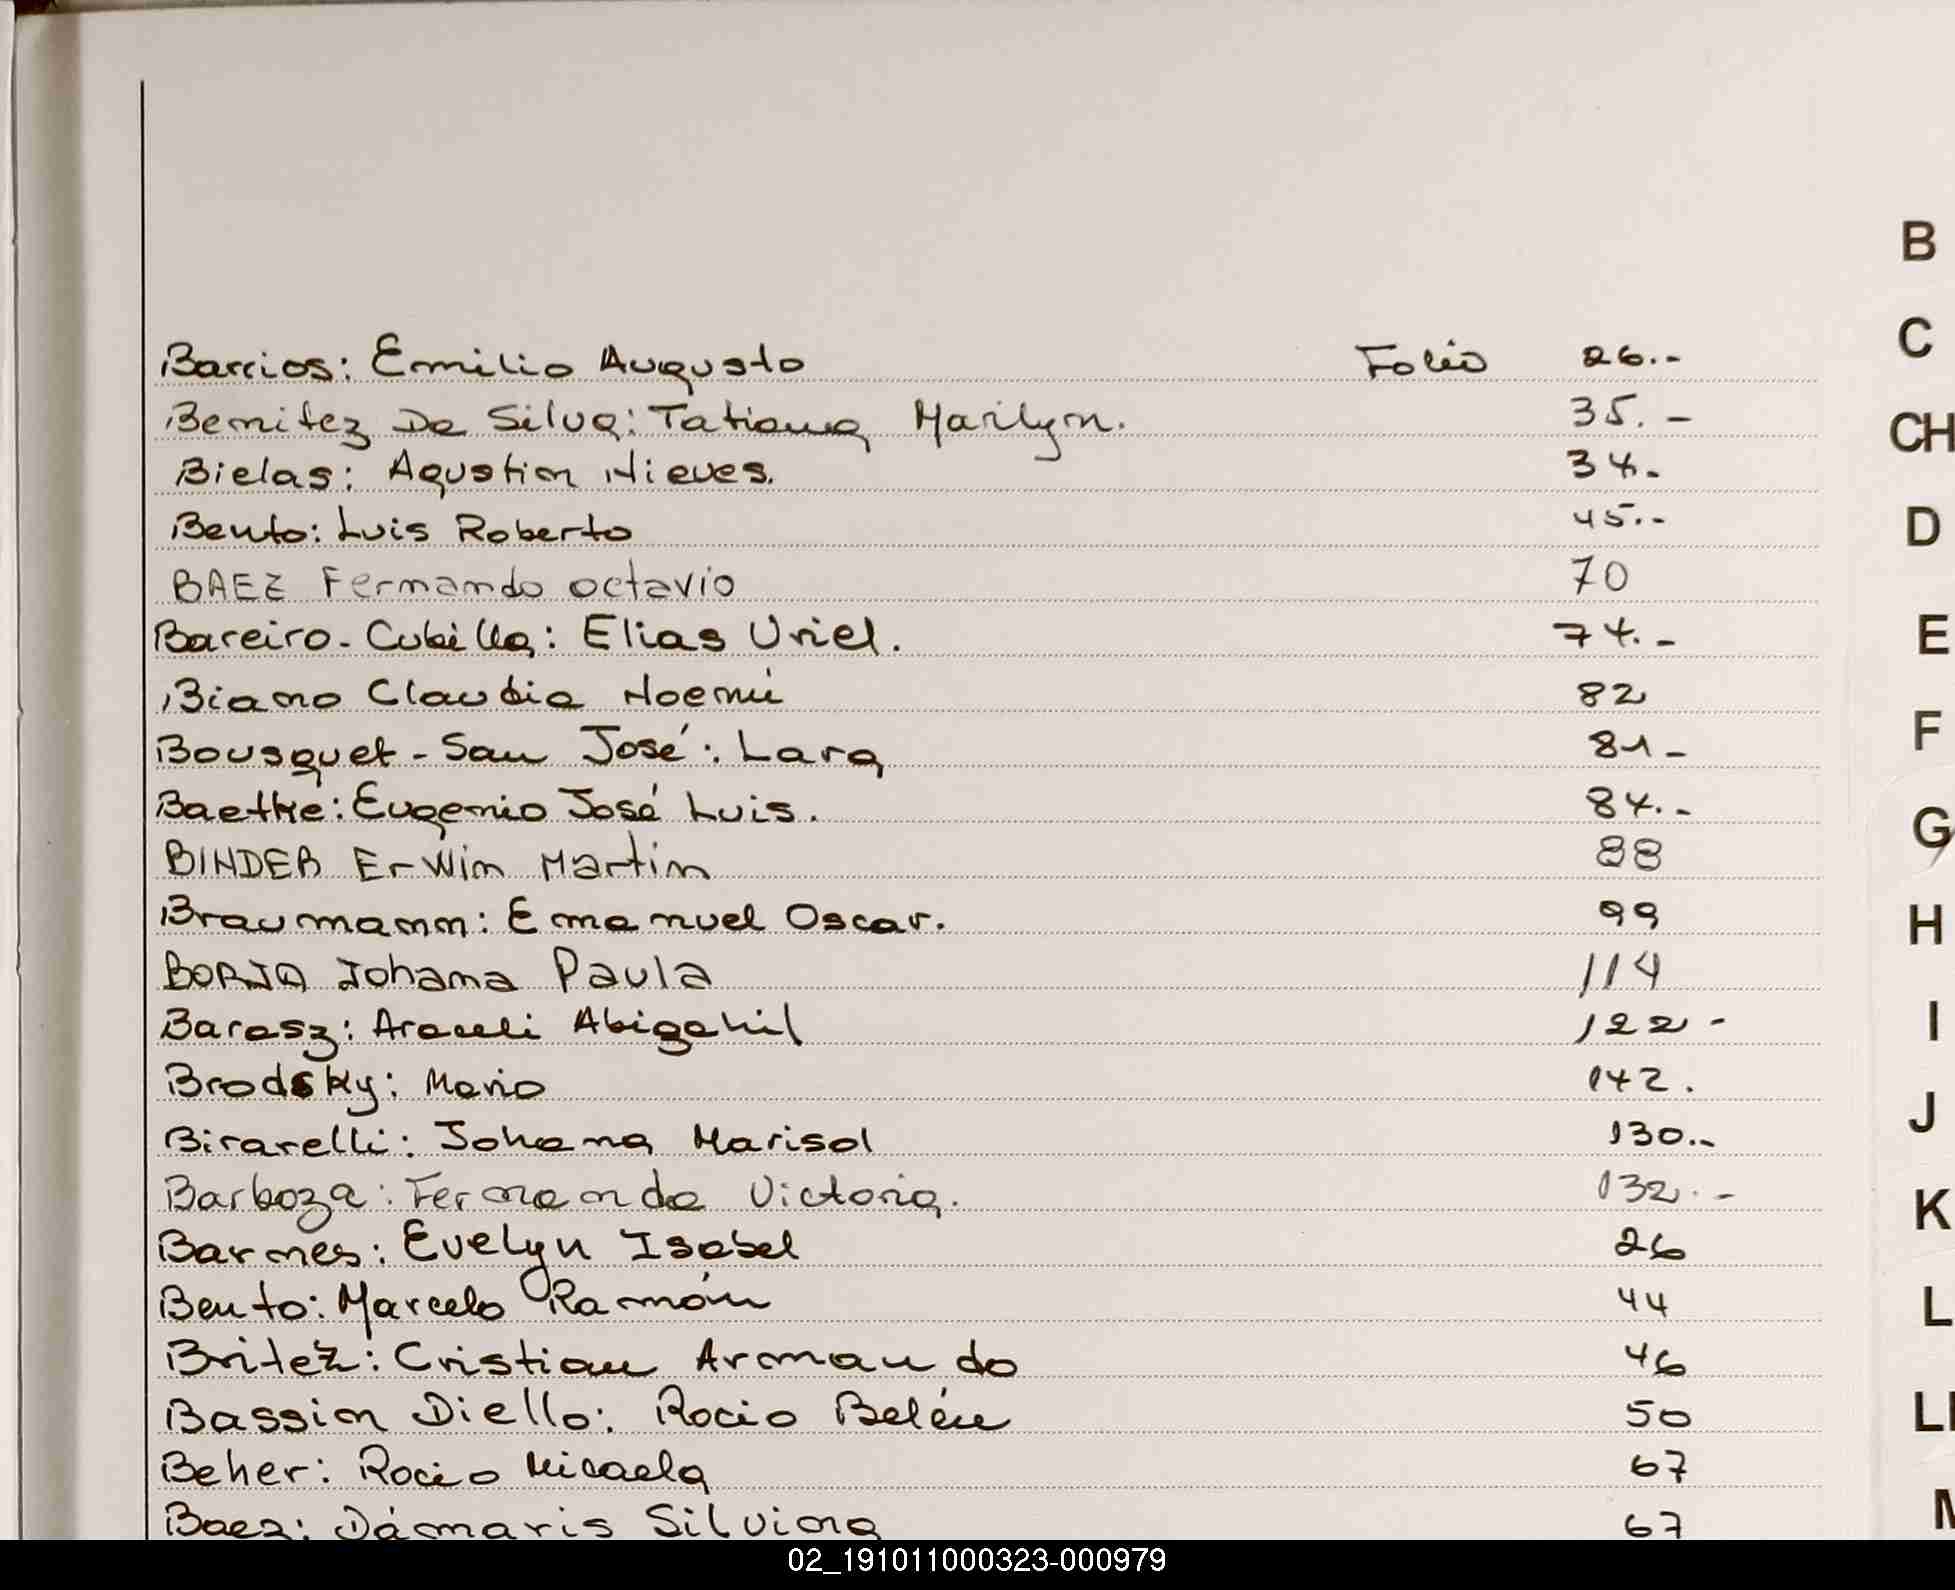 Barrios: Emilio Augusto Folio 26.-
Benitez Da Silva: Tatiana Marilyn. 35.-
Bielas: Agustin Nieves. 34.-
Bento: Luis Roberto 45.-
BAEZ Fernando octavio 70
Bareiro - Cubilla: Elias Uriel. 74.-
Biano Claudia Noemí 82
Bousquet - San José: Lara 81-
Baethe: Eugenio José Luis. 84.-
BINDER Erwin Martin 88
Braumann: Emanuel Oscar. 99
BORJA Johana Paula 114
Barasz: Araceli Abigahil 122-
Brodsky: Mario 142.
Birarelli: Johana Marisol 130.-
Barboza: Fernanda Victoria. 132.-
Barnes: Evelyn Isabel 26
Bento: Marcelo Ramón 44
Britez: Cristian Armando 46
Bassion Diello: Rocio Belén 50
Beher: Rocio Micaela 67
Baez: Dámaris Silvina 67
B
C
CH
D
E
F
G
H
I
J
K
L
02_191011000323-000979